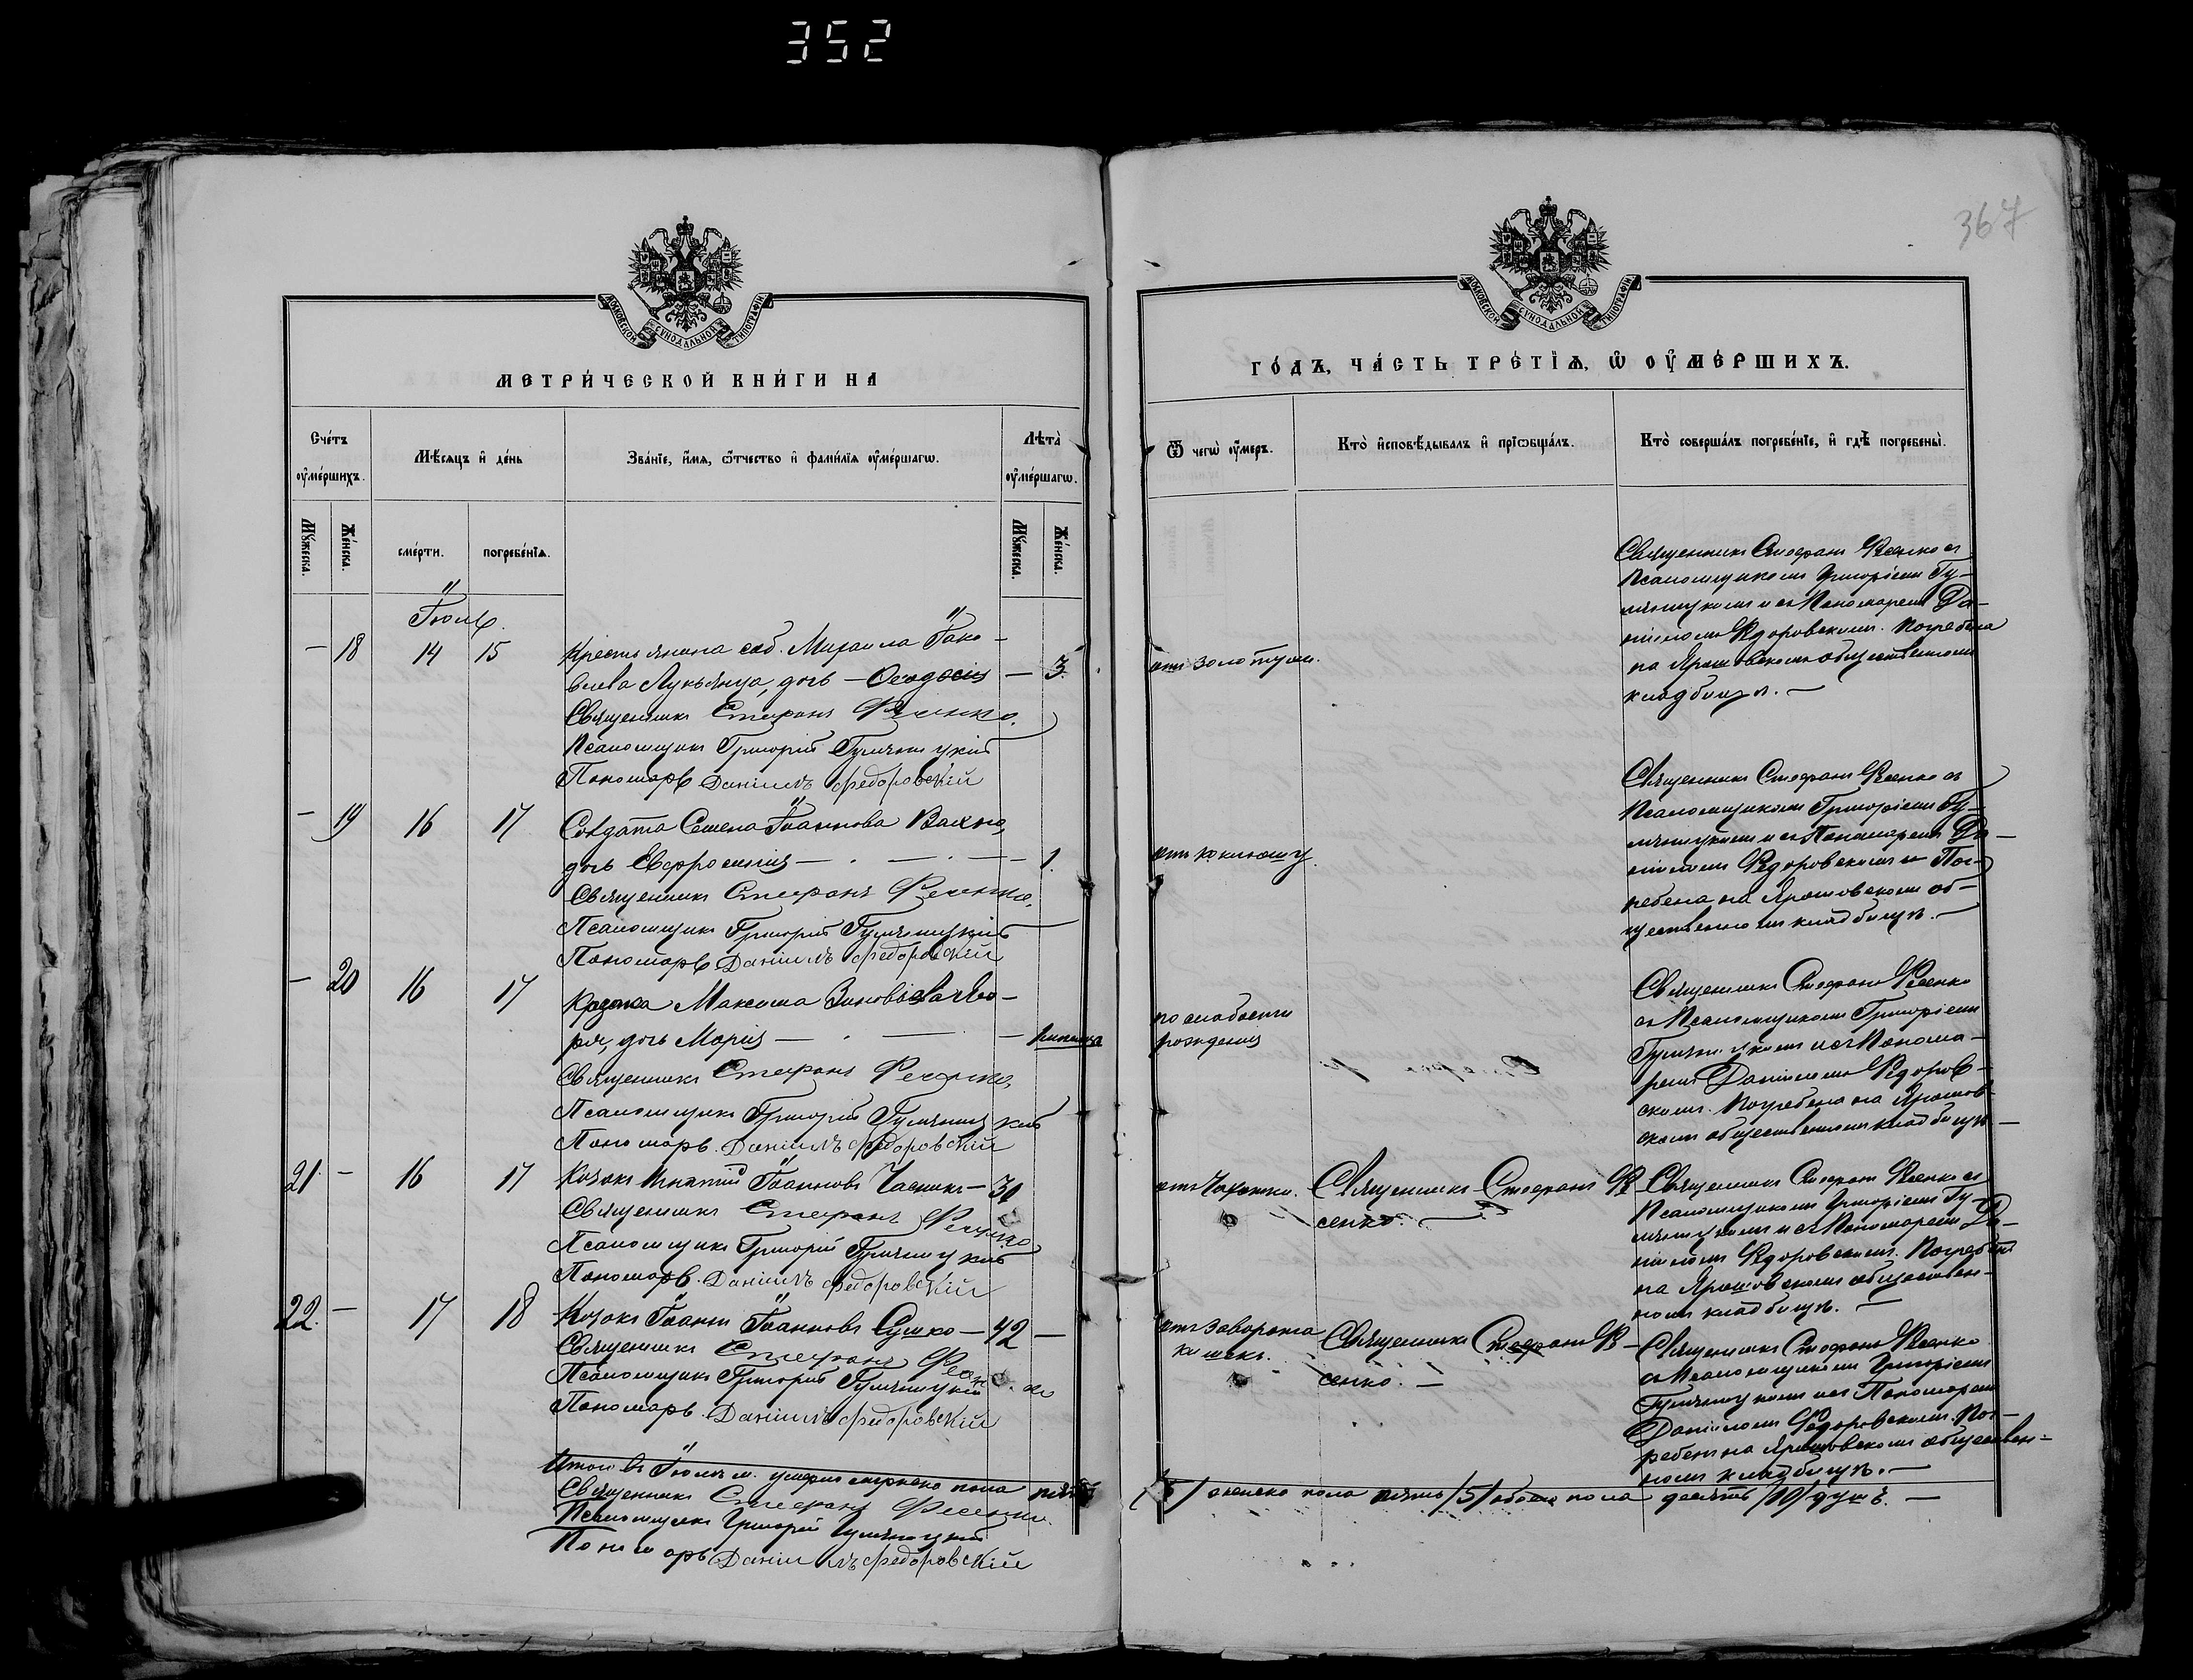 352
367
МОСКОВСКОЙ СѴНОДАЛЬНОЙ ТИПОГРАФІИ
МОСКОВСКОЙ СѴНОДАЛЬНОЙ ТИПОГРАФІИ
МЕТРИ́ЧЕСКОЙ КНИ́ГИ НА
ГО́ДЪ, ЧА́СТЬ ТРЕ́ТІѦ, Ѡ ОУ҆МЕ́РШИХЪ.
Сче́тъ оу҆ме́ршихъ.
Мѣ́сяцъ и҆ де́нь
Зва́нїе, и҆́мя, ѻ҆́тчество и҆ фами́лїя оу҆ме́ршагѡ.
Лѣта̀ оу҆ме́ршагѡ.
Ѿ чегѡ̀ оу҆́меръ.
Кто̀ и҆сповѣ́дывалъ и҆ прїѡбща́лъ.
Кто̀ соверша́лъ погребе́нїе, и҆ гдѣ̀ погребены̀.
Мꙋ́жеска.
Же́нска.
сме́рти.
погребе́нїѧ.
Мꙋ́жеска.
Же́нска.
Іюль.
— 18 14 15 Крестьянина соб. Михаила Іако-
влева Лукьянца, дочь — Ѳеодосія — 3.
Священникъ Стефанъ Фесенко.
Псаломщикъ Григорій Гумницкій
Пономарь Даніилъ Федоровскій
отъ золотухи.
Священникъ Стефанъ Фесенко съ
Псаломщикомъ Григоріемъ Гу-
мницкимъ и съ Пономаремъ Да-
ніиломъ Федоровскимъ. Погребена
на Ярошовскомъ общественномъ
кладбищѣ. —
— 19 16 17 Солдата Семена Іоаннова Вахна,
дочь Евфросинія — 1.
Священникъ Стефанъ Фесенко.
Псаломщикъ Григорій Гумницкій
Пономарь Даніилъ Федоровскій
отъ коклюшу.
Священникъ Стефанъ Фесенко съ
Псаломщикомъ Григоріемъ Гу-
мницкимъ и съ Пономаремъ Да-
ніиломъ Федоровскимъ Пог-
ребена на Ярошовскомъ об-
щественномъ кладбищѣ. —
— 20 16 17 Козака Максима Зиновіева
дочь Марія —
Священникъ Стефанъ Фесенко,
Псаломщикъ Григорій Гумницкій
Пономарь. Даніилъ Федоровскій
по слабости
рожденія
Священникъ Стефанъ Фесенко
съ Псаломщикомъ Григоріемъ
Гумницкимъ и съ Понома-
ремъ Даніиломъ Федоров-
скимъ. Погребена на Ярошов-
скомъ общественномъ кладбищѣ —
21. — 16 17 Козакъ Игнатій Іоанновъ Часникъ — 30
Священникъ Стефанъ Фесенко
Псаломщикъ Григорій Гумницкій
Пономарь. Даніилъ Федоровскій
отъ Чахотки. Священникъ Стефанъ Фе-
сенко. —
Священникъ Стефанъ Фесенко съ
Псаломщикомъ Григоріемъ Гу-
мницкимъ и съ Пономаремъ Да-
ніиломъ Федоровскимъ. Погребенъ
на Ярошовскомъ обществен-
номъ кладбищѣ. —
22. — 17 18 Козакъ Іоаннъ Іоанновъ Сушко — 42 —
Священникъ Стефанъ Фесенко
Псаломщикъ Григорій Гумницкій
Пономарь. Даніилъ Федоровскій
отъ заворота
кишекъ.
Священникъ Стефанъ Фе-
сенко. —
Священникъ Стефанъ Фесенко
съ Псаломщикомъ Григоріемъ
Гумницкимъ и съ Пономаремъ
Даніиломъ Федоровскимъ. Пог-
ребенъ на Ярошовскомъ обществен-
номъ кладбищѣ. —
Итого въ Іюлѣ м. умерло мужеска пола пять /5/ женска пола пять /5/ обоего пола десять /10/ душъ. —
Священникъ Стефанъ Фесенко.
Псаломщикъ Григорій Гумницкій
Пономарь Даніилъ Федоровскій